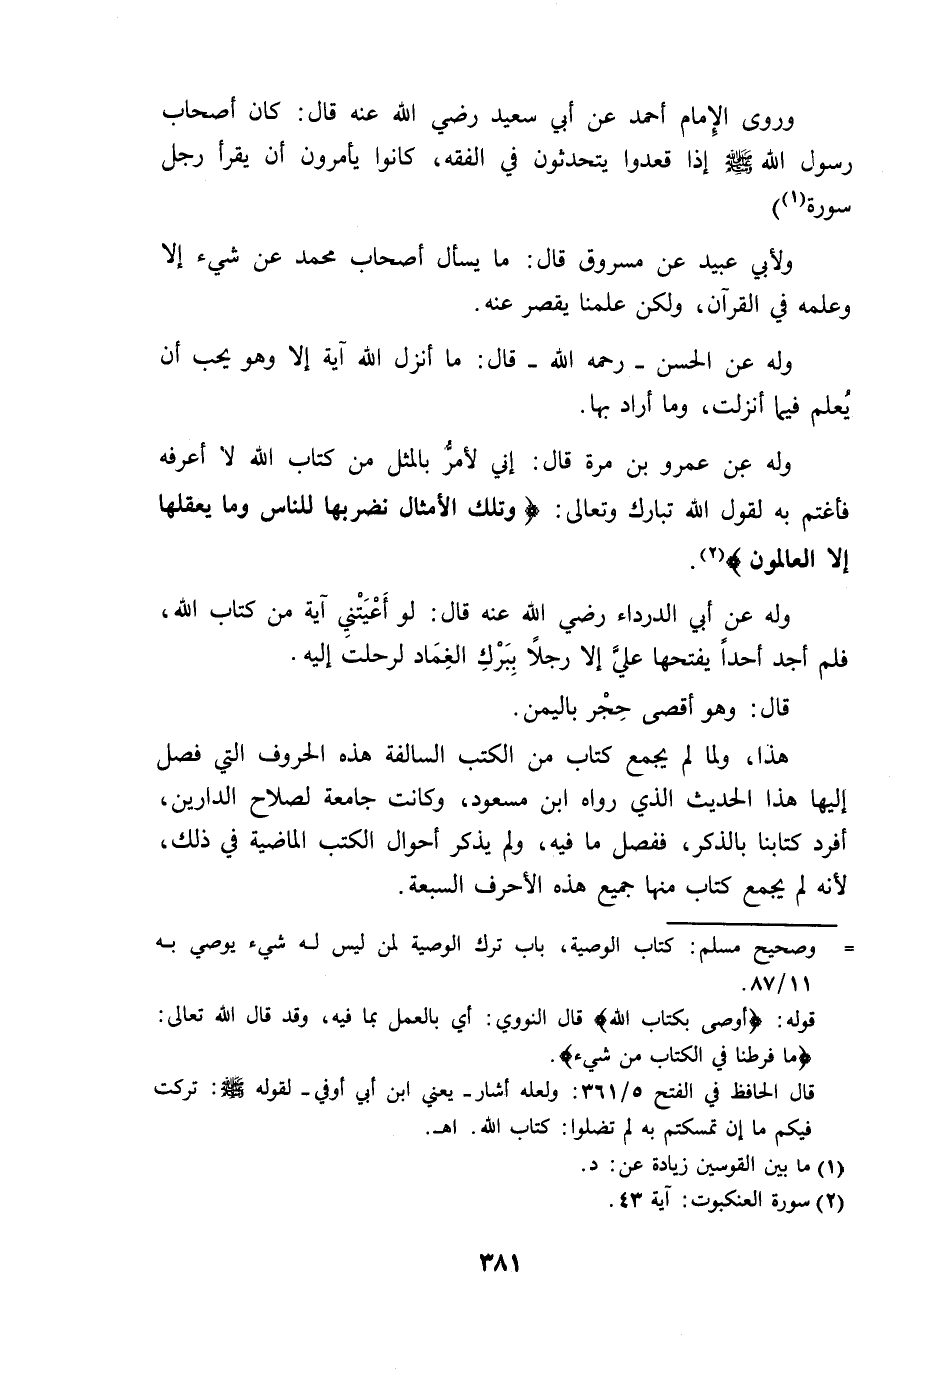 وروى الإمام أحمد عن أبي سعيد رضي الله عنه قال: كان أصحاب
رسول الله ﷺ إذا قعدوا يتحدثون في الفقه، كانوا يأمرون أن يقرأ رجل
سورة(١))
ولأبي عبيد عن مسروق قال: ما يسأل أصحاب محمد عن شيء إلا
وعلمه في القرآن، ولكن علمنا يقصر عنه.
وله عن الحسن ـ رحمه الله ـ قال: ما أنزل الله آية إلا وهو يحب أن
يُعلم فيما أنزلت، وما أراد بها.
وله عن عمرو بن مرة قال: إني لأمرُّ بالمثل من كتاب الله لا أعرفه
فأغتم به لقول الله تبارك وتعالى: ﴿وتلك الأمثال نضربها للناس وما يعقلها
إلا العالمون﴾(٢).
وله عن أبي الدرداء رضي الله عنه قال: لو أَعْيَتْنِي آية من كتاب الله،
فلم أجد أحداً يفتحها عليَّ إلا رجلًا بِبَرْكِ الغِمَاد لرحلت إليه.
قال: وهو أقصى حِجْر باليمن.
هذا، ولما لم يجمع كتاب من الكتب السالفة هذه الحروف التي فصل
إليها هذا الحديث الذي رواه ابن مسعود، وكانت جامعة لصلاح الدارين،
أفرد كتابنا بالذكر، ففصل ما فيه، ولم يذكر أحوال الكتب الماضية في ذلك،
لأنه لم يجمع كتاب منها جميع هذه الأحرف السبعة.
= وصحيح مسلم: كتاب الوصية، باب ترك الوصية لمن ليس له شيء يوصي به
٨٧/١١.
قوله: ﴿أوصى بكتاب الله﴾ قال النووي: أي بالعمل بما فيه، وقد قال الله تعالى:
﴿ما فرطنا في الكتاب من شيء﴾.
قال الحافظ في الفتح ٣٦١/٥: ولعله أشار ـ يعني ابن أبي أوفي ـ لقوله ﷺ: تركت
فيكم ما إن تمسكتم به لم تضلوا: كتاب الله. اهـ.
(١) ما بين القوسين زيادة عن: د.
(٢) سورة العنكبوت: آية ٤٣.
٣٨١